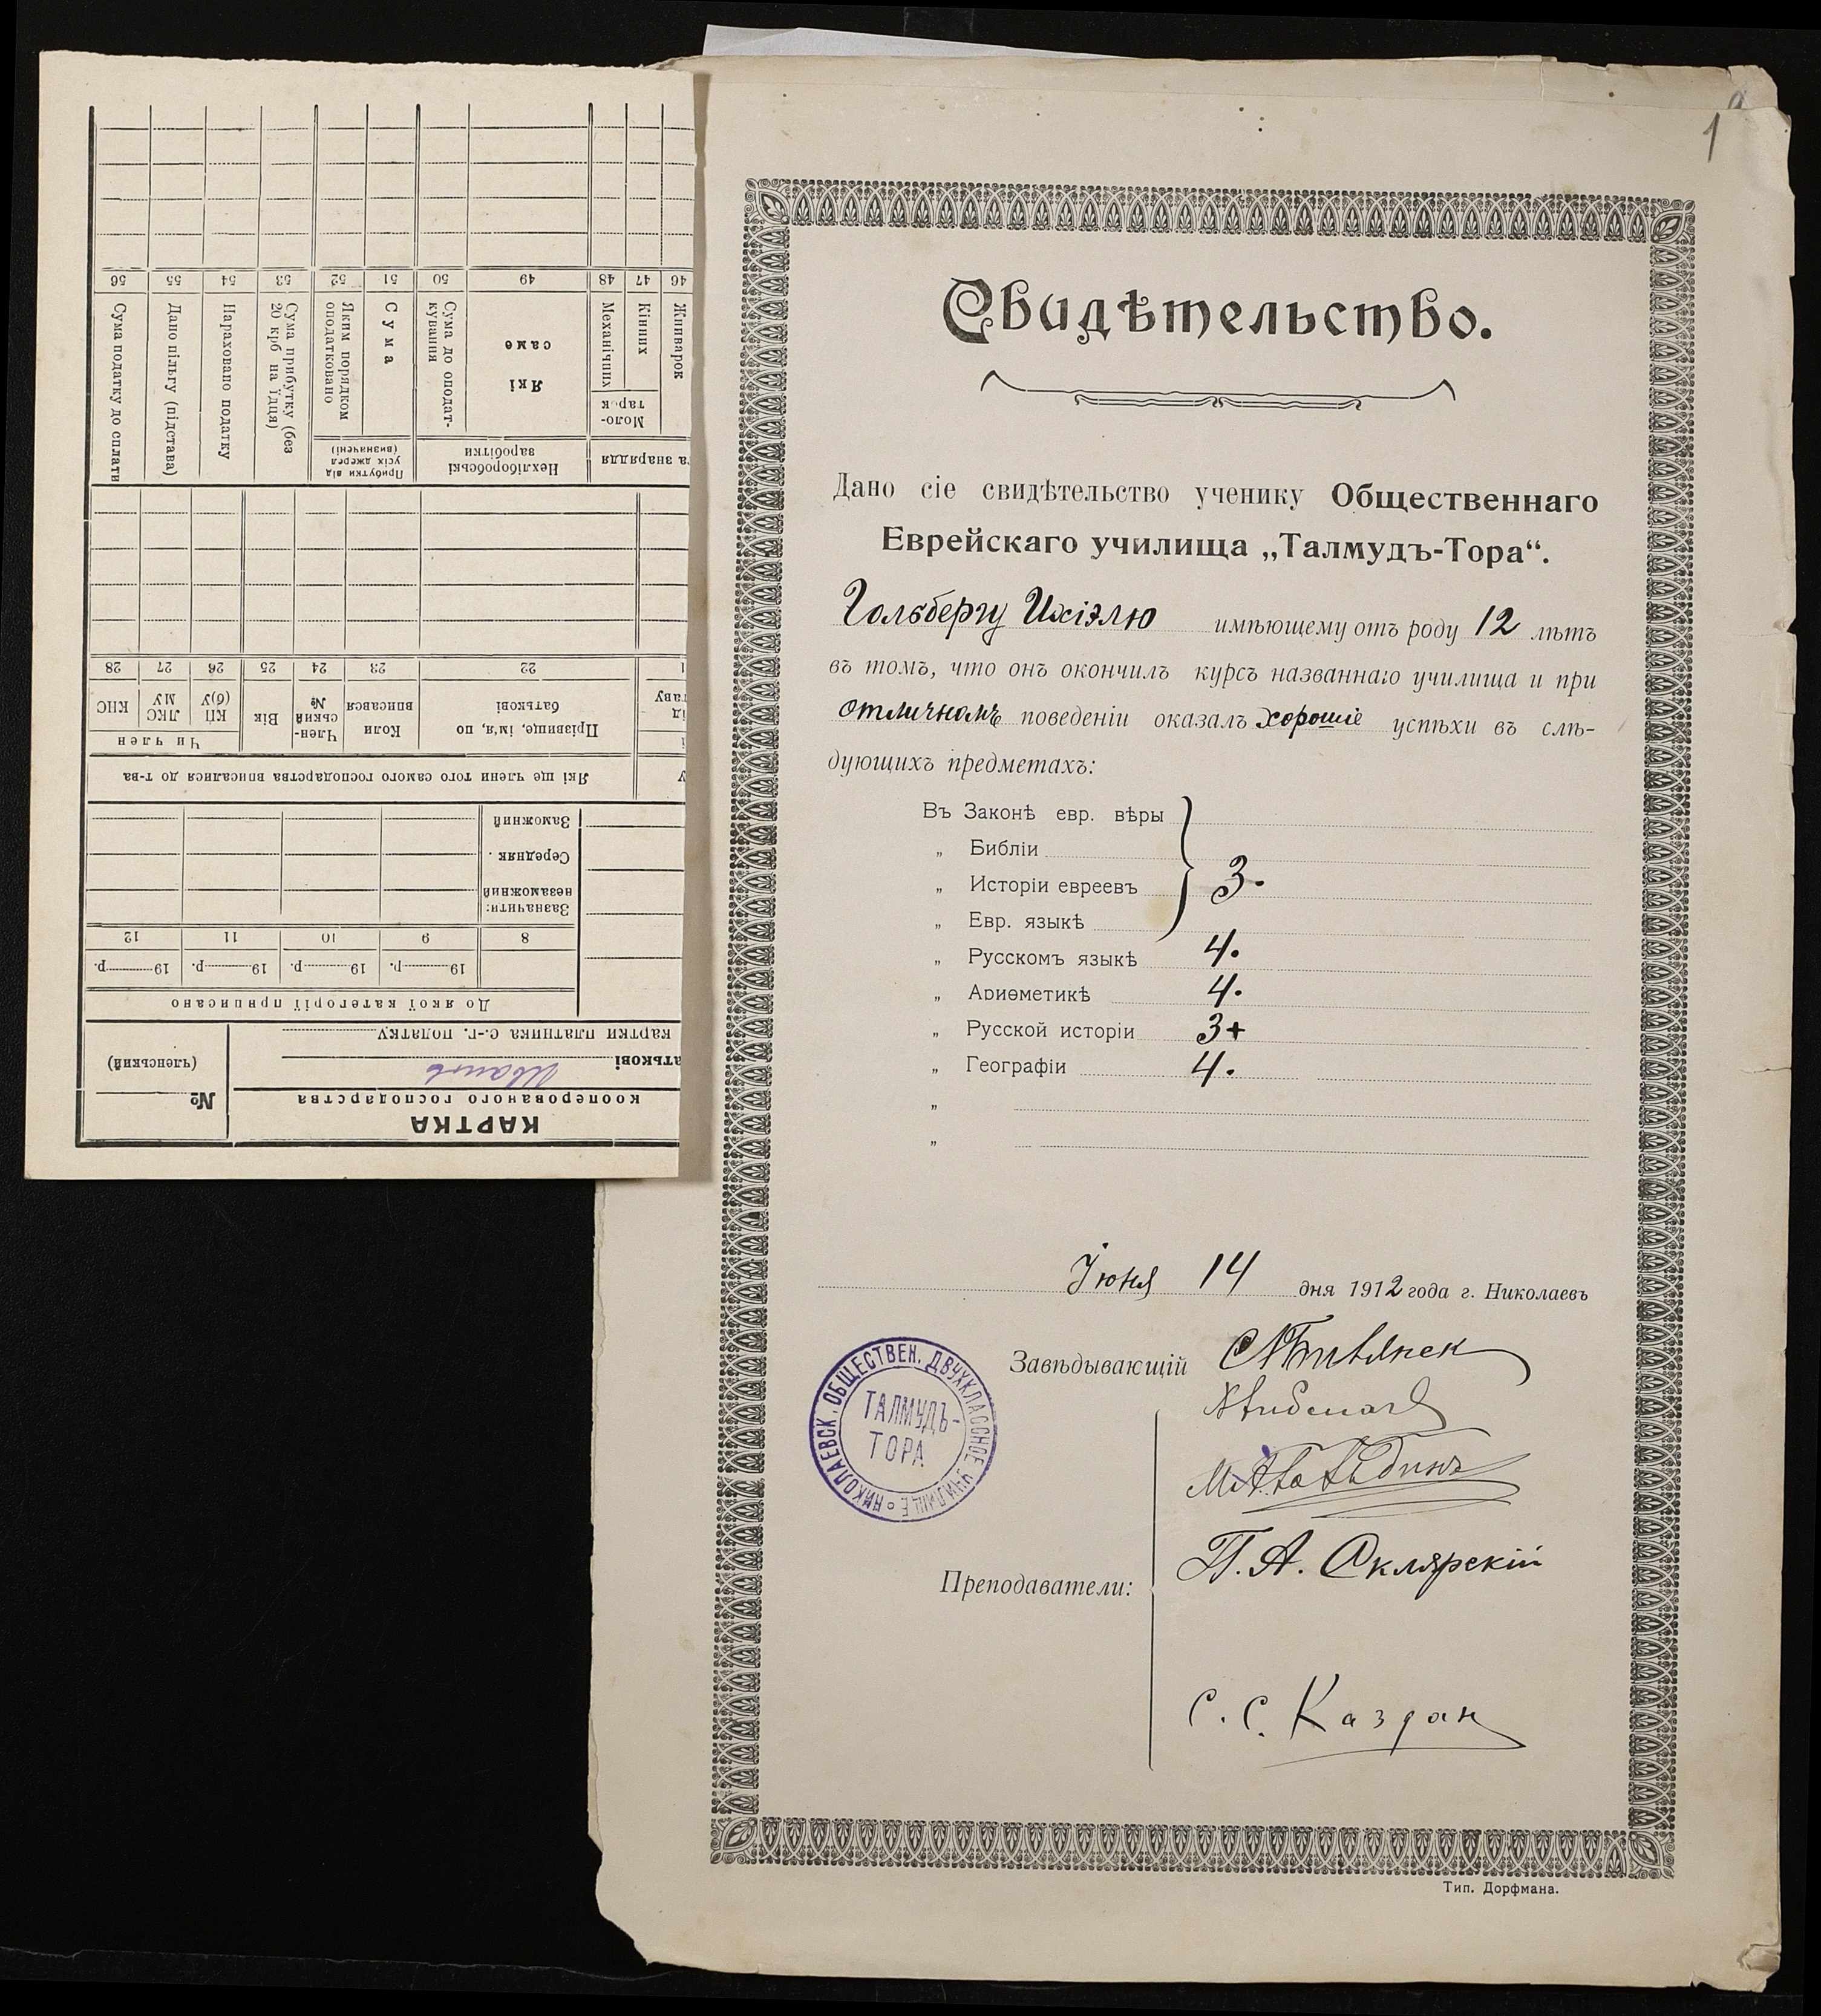 1
Свидѣтельство.
Дано сіе свидѣтельство ученику Общественнаго
Еврейскаго училища „Талмудъ-Тора“.
Гольбергу Ихіэлю имѣющему отъ роду 12 лѣтъ
въ томъ, что онъ окончилъ курсъ названнаго училища и при
отличномъ поведеніи оказалъ хорошіе успѣхи въ слѣ-
дующихъ предметахъ:
Въ Законѣ евр. вѣры
„ Библіи
„ Исторіи евреевъ 3.
„ Евр. языкѣ
„ Русскомъ языкѣ 4.
„ Ариѳметикѣ 4.
„ Русской исторіи 3+
„ Географіи 4.
„
„
Іюня 14 дня 1912 года г. Николаевъ
Завѣдывающій
НИКОЛАЕВСК. ОБЩЕСТВЕН. ДВУХКЛАССНОЕ УЧИЛИЩЕ
ТАЛМУДЪ-
ТОРА
Преподаватели:
П. А. Склярскій
С. С. Каздан
Тип. Дорфмана.
КАРТКА
кооперованого господарства
№
(членський)
атькові
картки платника с.-г. податку
До якої категорії приписано
19 р. 19 р. 19 р. 19 р.
8 9 10 11 12
Зазначити:
незаможний
Середняк
Заможний
Які ще члени того самого господарства вписалися до т-ва
Прізвище, ім'я, по
батькові
Коли
вписався
Член-
ський
№
Вік
Чи член
КП
(б)У
ЛКС
МУ
КНС
22 23 24 25 26 27 28
а знаряддя
Нехліборобські
заробітки
Прибутки від
усіх джерел
(визначені)
Жниварок
Моло-
тарок
Кінних
Механічних
Які
саме
Сума до оподат-
кування
Сума
Яким порядком
оподатковано
Сума прибутку (без
20 крб на їдця)
Нараховано податку
Дано пільгу (підстава)
Сума податку до сплати
46 47 48 49 50 51 52 53 54 55 56